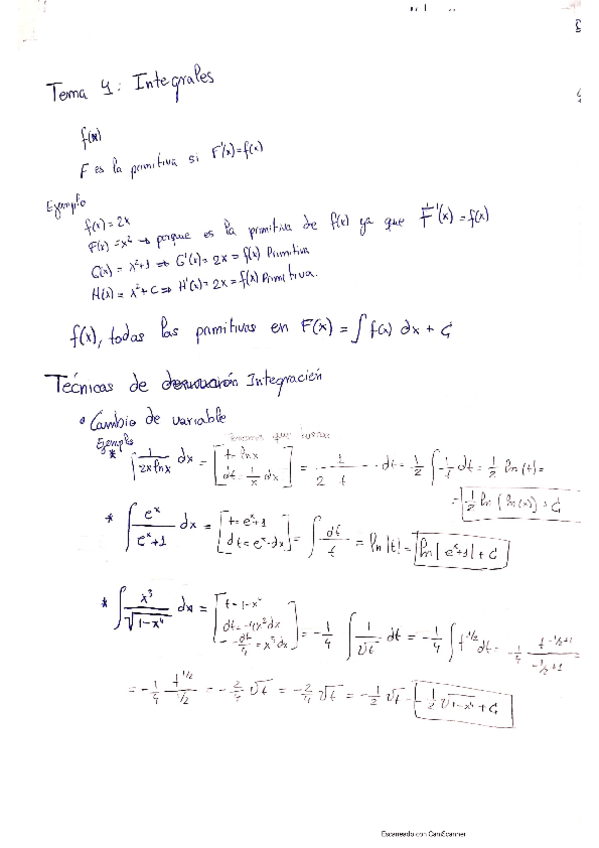 Tema 4: Integrales
f(x)
F es la primitiva si F'(x)=f(x)
Ejemplo
f(x)=2x
F(x)=x² → porque es la primitiva de f(x) ya que F'(x)=f(x)
G(x)=x²+1 ⇒ G'(x)=2x=f(x) Primitiva
H(x)=x²+C ⇒ H'(x)=2x=f(x) Primitiva.
f(x), todas las primitivas en F(x)=∫f(x) dx + C
Técnicas de Integración
• Cambio de variable
Ejemplo
* ∫ 1/(2x lnx) dx = [t=lnx dt=1/x dx] = 1/2 1/t dt = 1/2 ∫ 1/t dt = 1/2 ln(t) =
= 1/2 ln(ln(x)) + C
* ∫ eˣ/(eˣ+1) dx = [t=eˣ+1 dt=eˣ·dx] = ∫ dt/t = ln|t| = ln|eˣ+1| + C
* ∫ x³/√(1-x⁴) dx = [t=1-x⁴ dt=-4x³dx -dt/4=x³dx] = -1/4 ∫ 1/√t dt = -1/4 ∫ t^-1/2 dt = -1/4 t^(-1/2+1)/(-1/2+1)
= -1/4 t^1/2/(1/2) = -2/4 √t = -2/4 √t = -1/2 √t = -1/2 √(1-x⁴) + C
Escaneado con CamScanner